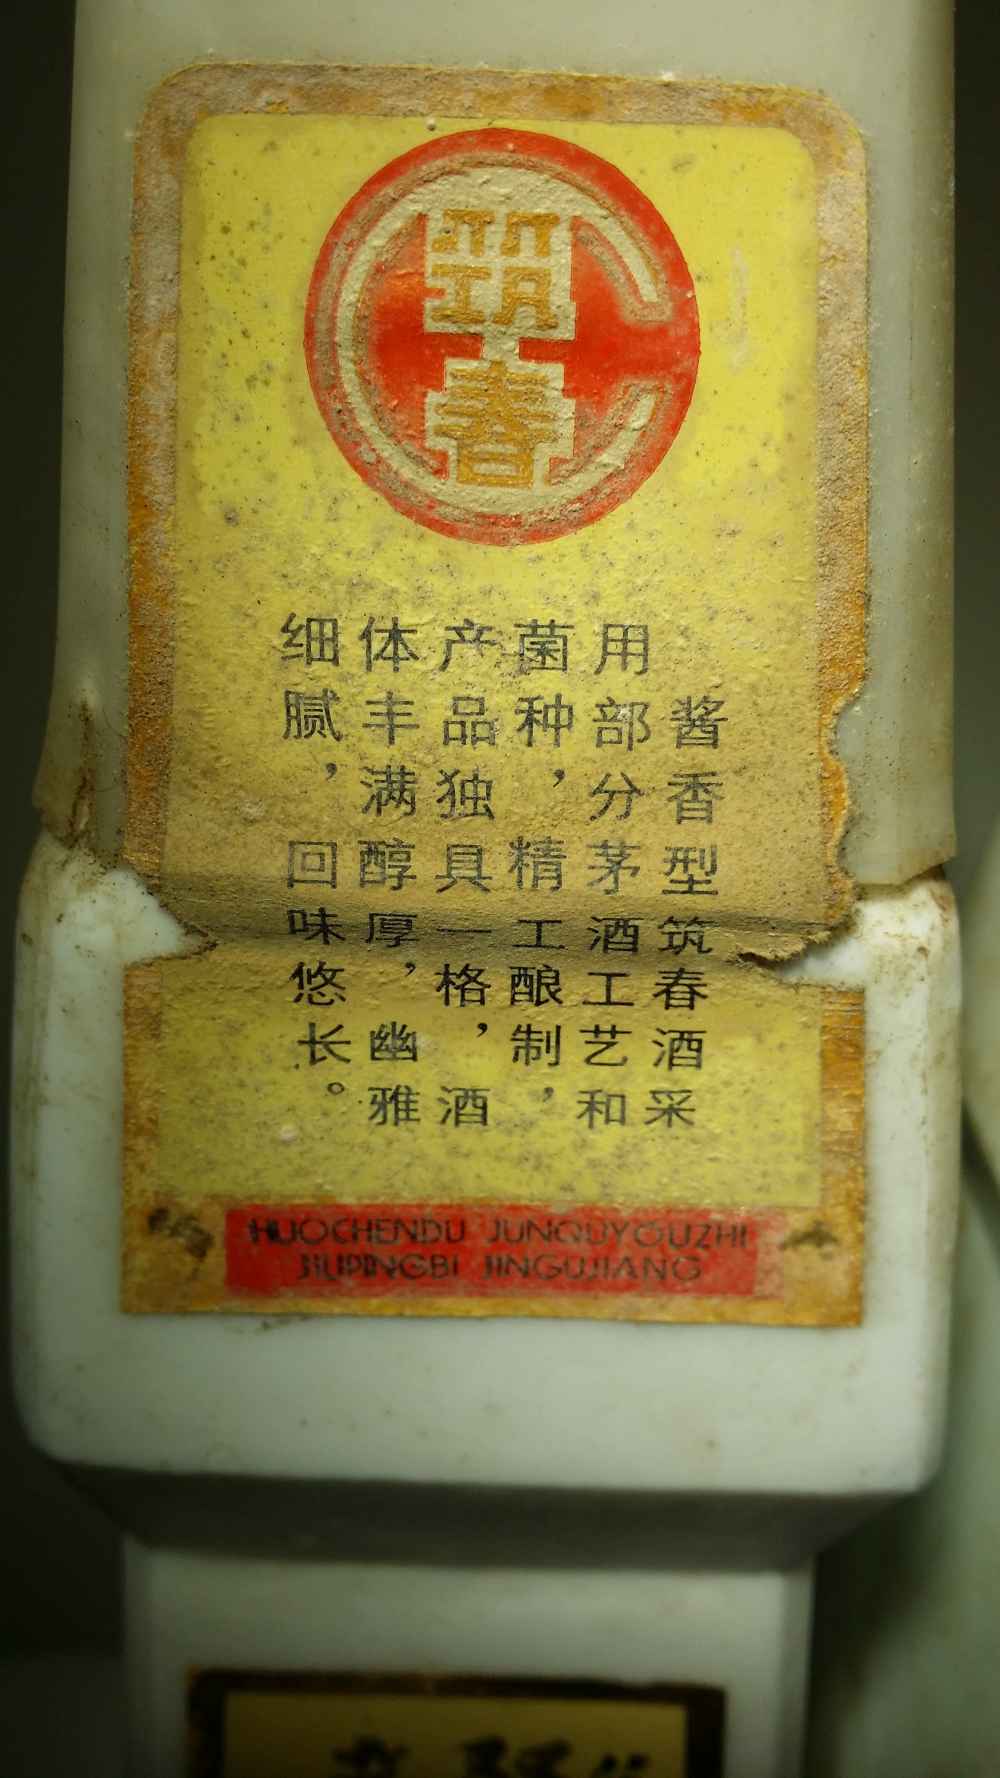 筑春
酱香型筑春酒采
用部分茅酒工艺和
菌种，精工酿制，
产品独具一格，酒
体丰满醇厚，幽雅
细腻，回味悠长。
HUOCHENDU JUNQUYOUZHI
JIUPINGBI JINGUJIANG